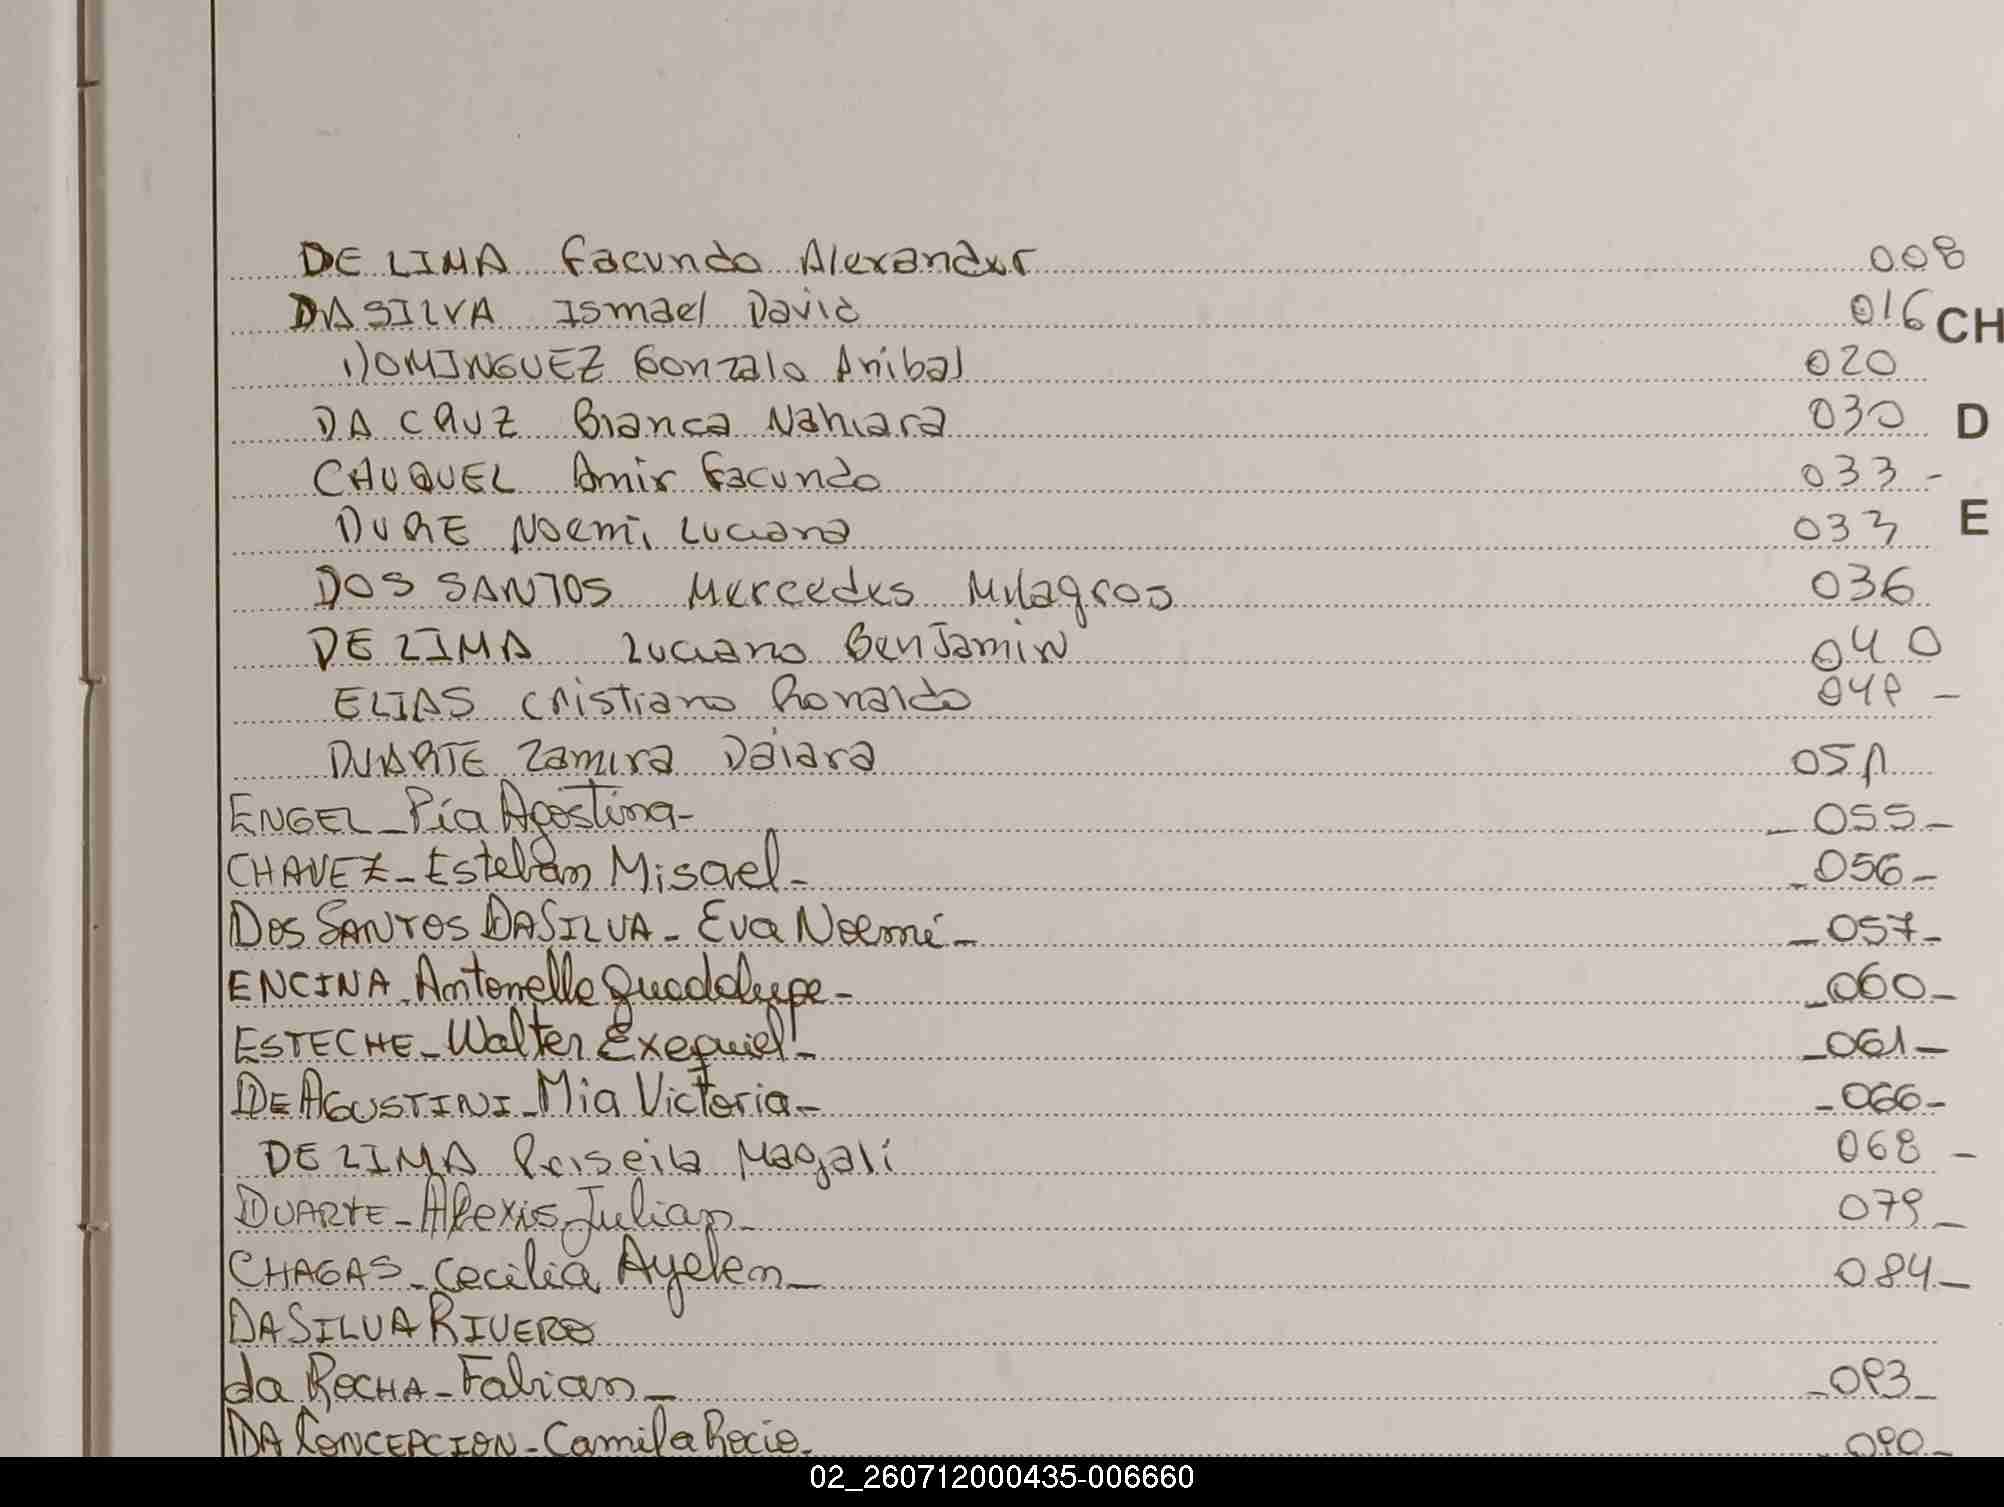 DE LIMA Facundo Alexander 008
DA SILVA Ismael David 016 CH
DOMINGUEZ Gonzalo Anibal 020
DA CRUZ Bianca Nahiara 030 D
CAUQUEL Amir Facundo 033 -
DURE Noemi Luciana 033 E
DOS SANTOS Mercedes Milagros 036
DE LIMA Luciano BenJamin 040
ELIAS Cristiano Ronaldo 049 -
DUARTE Zamira Daiara 051
ENGEL - Pía Agostina - - 055 -
CHAVEZ - Esteban Misael - - 056 -
DOS SANTOS DA SILVA - Eva Noemí - - 057 -
ENCINA - Antonella Guadalupe - - 060 -
ESTECHE - Walter Exequiel - - 061 -
DE AGUSTINI - Mia Victoria - - 066 -
DE LIMA Priseila Magali 068 -
DUARTE - Alexis Julian - 079 -
CHAGAS - Cecilia Ayelen - 084 -
DA SILVA RIVERO
da ROCHA - Fabian - - 093 -
DA CONCEPCION - Camila Rocio - - 090 -
02_260712000435-006660